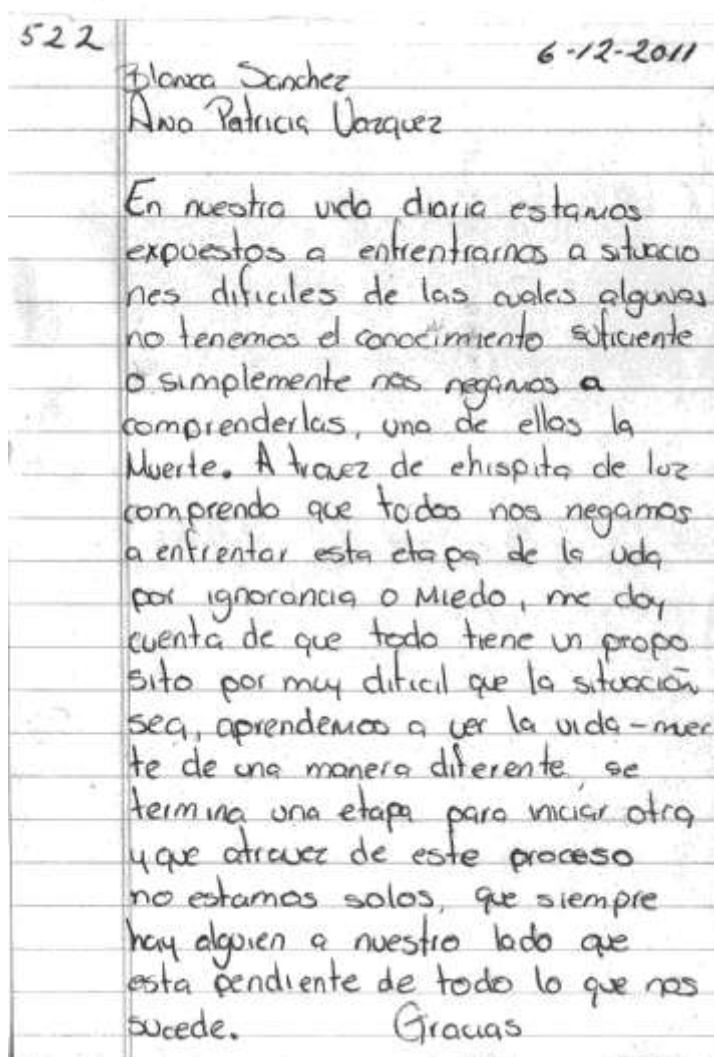 522
6-12-2011
Blanca Sanchez
Ana Patricia Vazquez
En nuestra vida diaria estamos
expuestos a enfrentrarnos a situacio
nes dificiles de las cuales algunas
no tenemos el conocimiento suficiente
o simplemente nos negamos a
comprenderlas, una de ellas la
Muerte. A travez de chispita de luz
comprendo que todos nos negamos
a enfrentar esta etapa de la vida
por ignorancia o Miedo, me doy
cuenta de que todo tiene un propo
sito por muy dificil que la situación
sea, aprendemos a ver la vida-muer
te de una manera diferente, se
termina una etapa para iniciar otra
y que atravez de este proceso
no estamos solos, que siempre
hay alguien a nuestro lado que
esta pendiente de todo lo que nos
sucede. Gracias